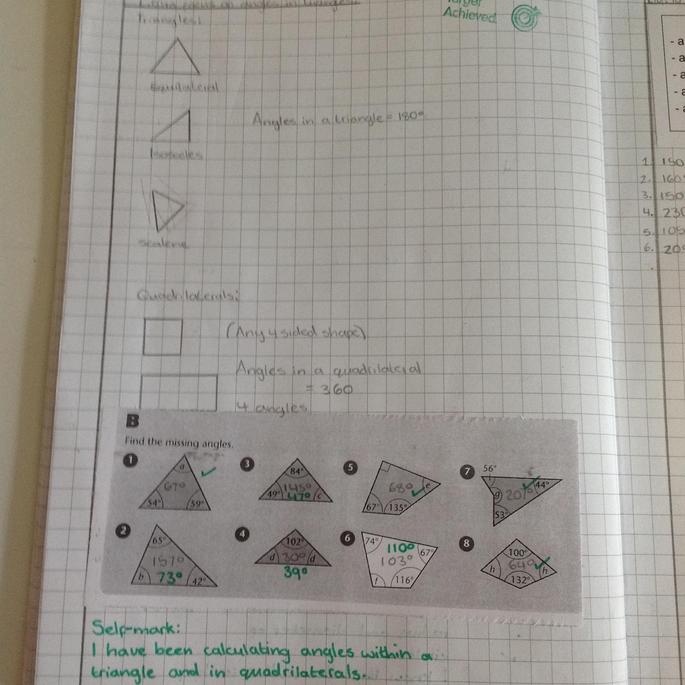 Target
Achieved
Triangles:
Equilateral
Isosceles
Angles in a triangle = 180°
Scalene
Quadrilaterals:
(Any 4 sided shape)
Angles in a quadrilateral
= 360
4 angles
B
Find the missing angles.
1 a 67° 54° 59°
3 84° 145° 49° 47° c
5 68° e 67° 135°
7 56° g 20° 44° 53°
2 65° 157° b 73° 42°
4 102° d 30° d 39°
6 74° 110° 67° 103° f 116°
8 100° h 64° h 132°
Self-mark:
I have been calculating angles within a
triangle and in quadrilaterals.
- a
- a
- a
- a
- a
1. 150
2. 160
3. 150
4. 230
5. 105
6. 20